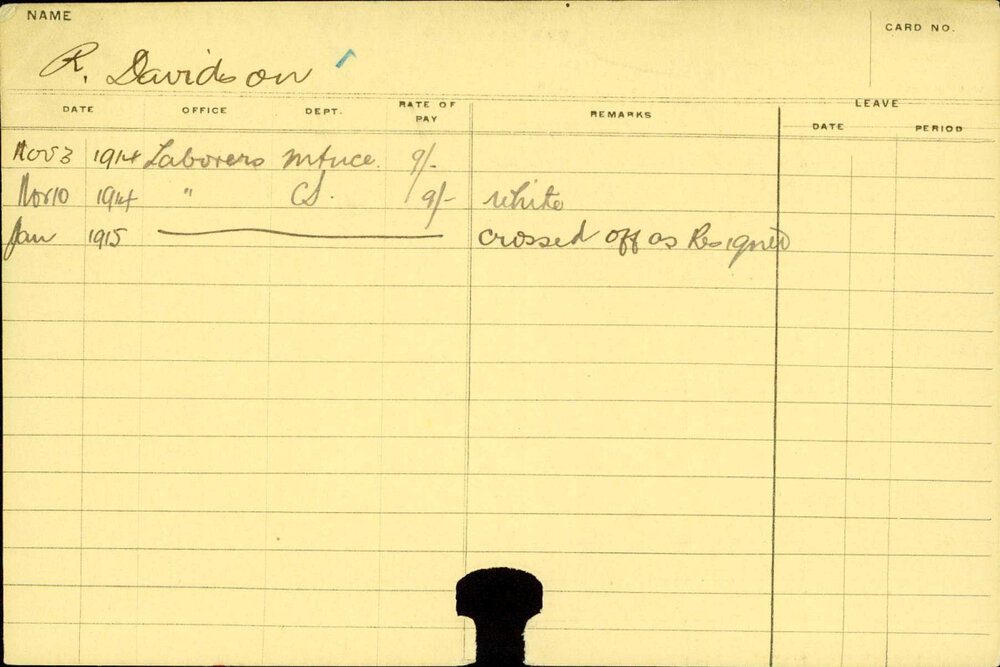 NAME
CARD NO.
R. Davidson
DATE OFFICE DEPT. RATE OF PAY REMARKS LEAVE
DATE PERIOD
Nov 3 1914 Laborers Mtnce. 9/-
Nov 10 1914 " CS. 9/- White
Jan 1915 crossed off as Resigned